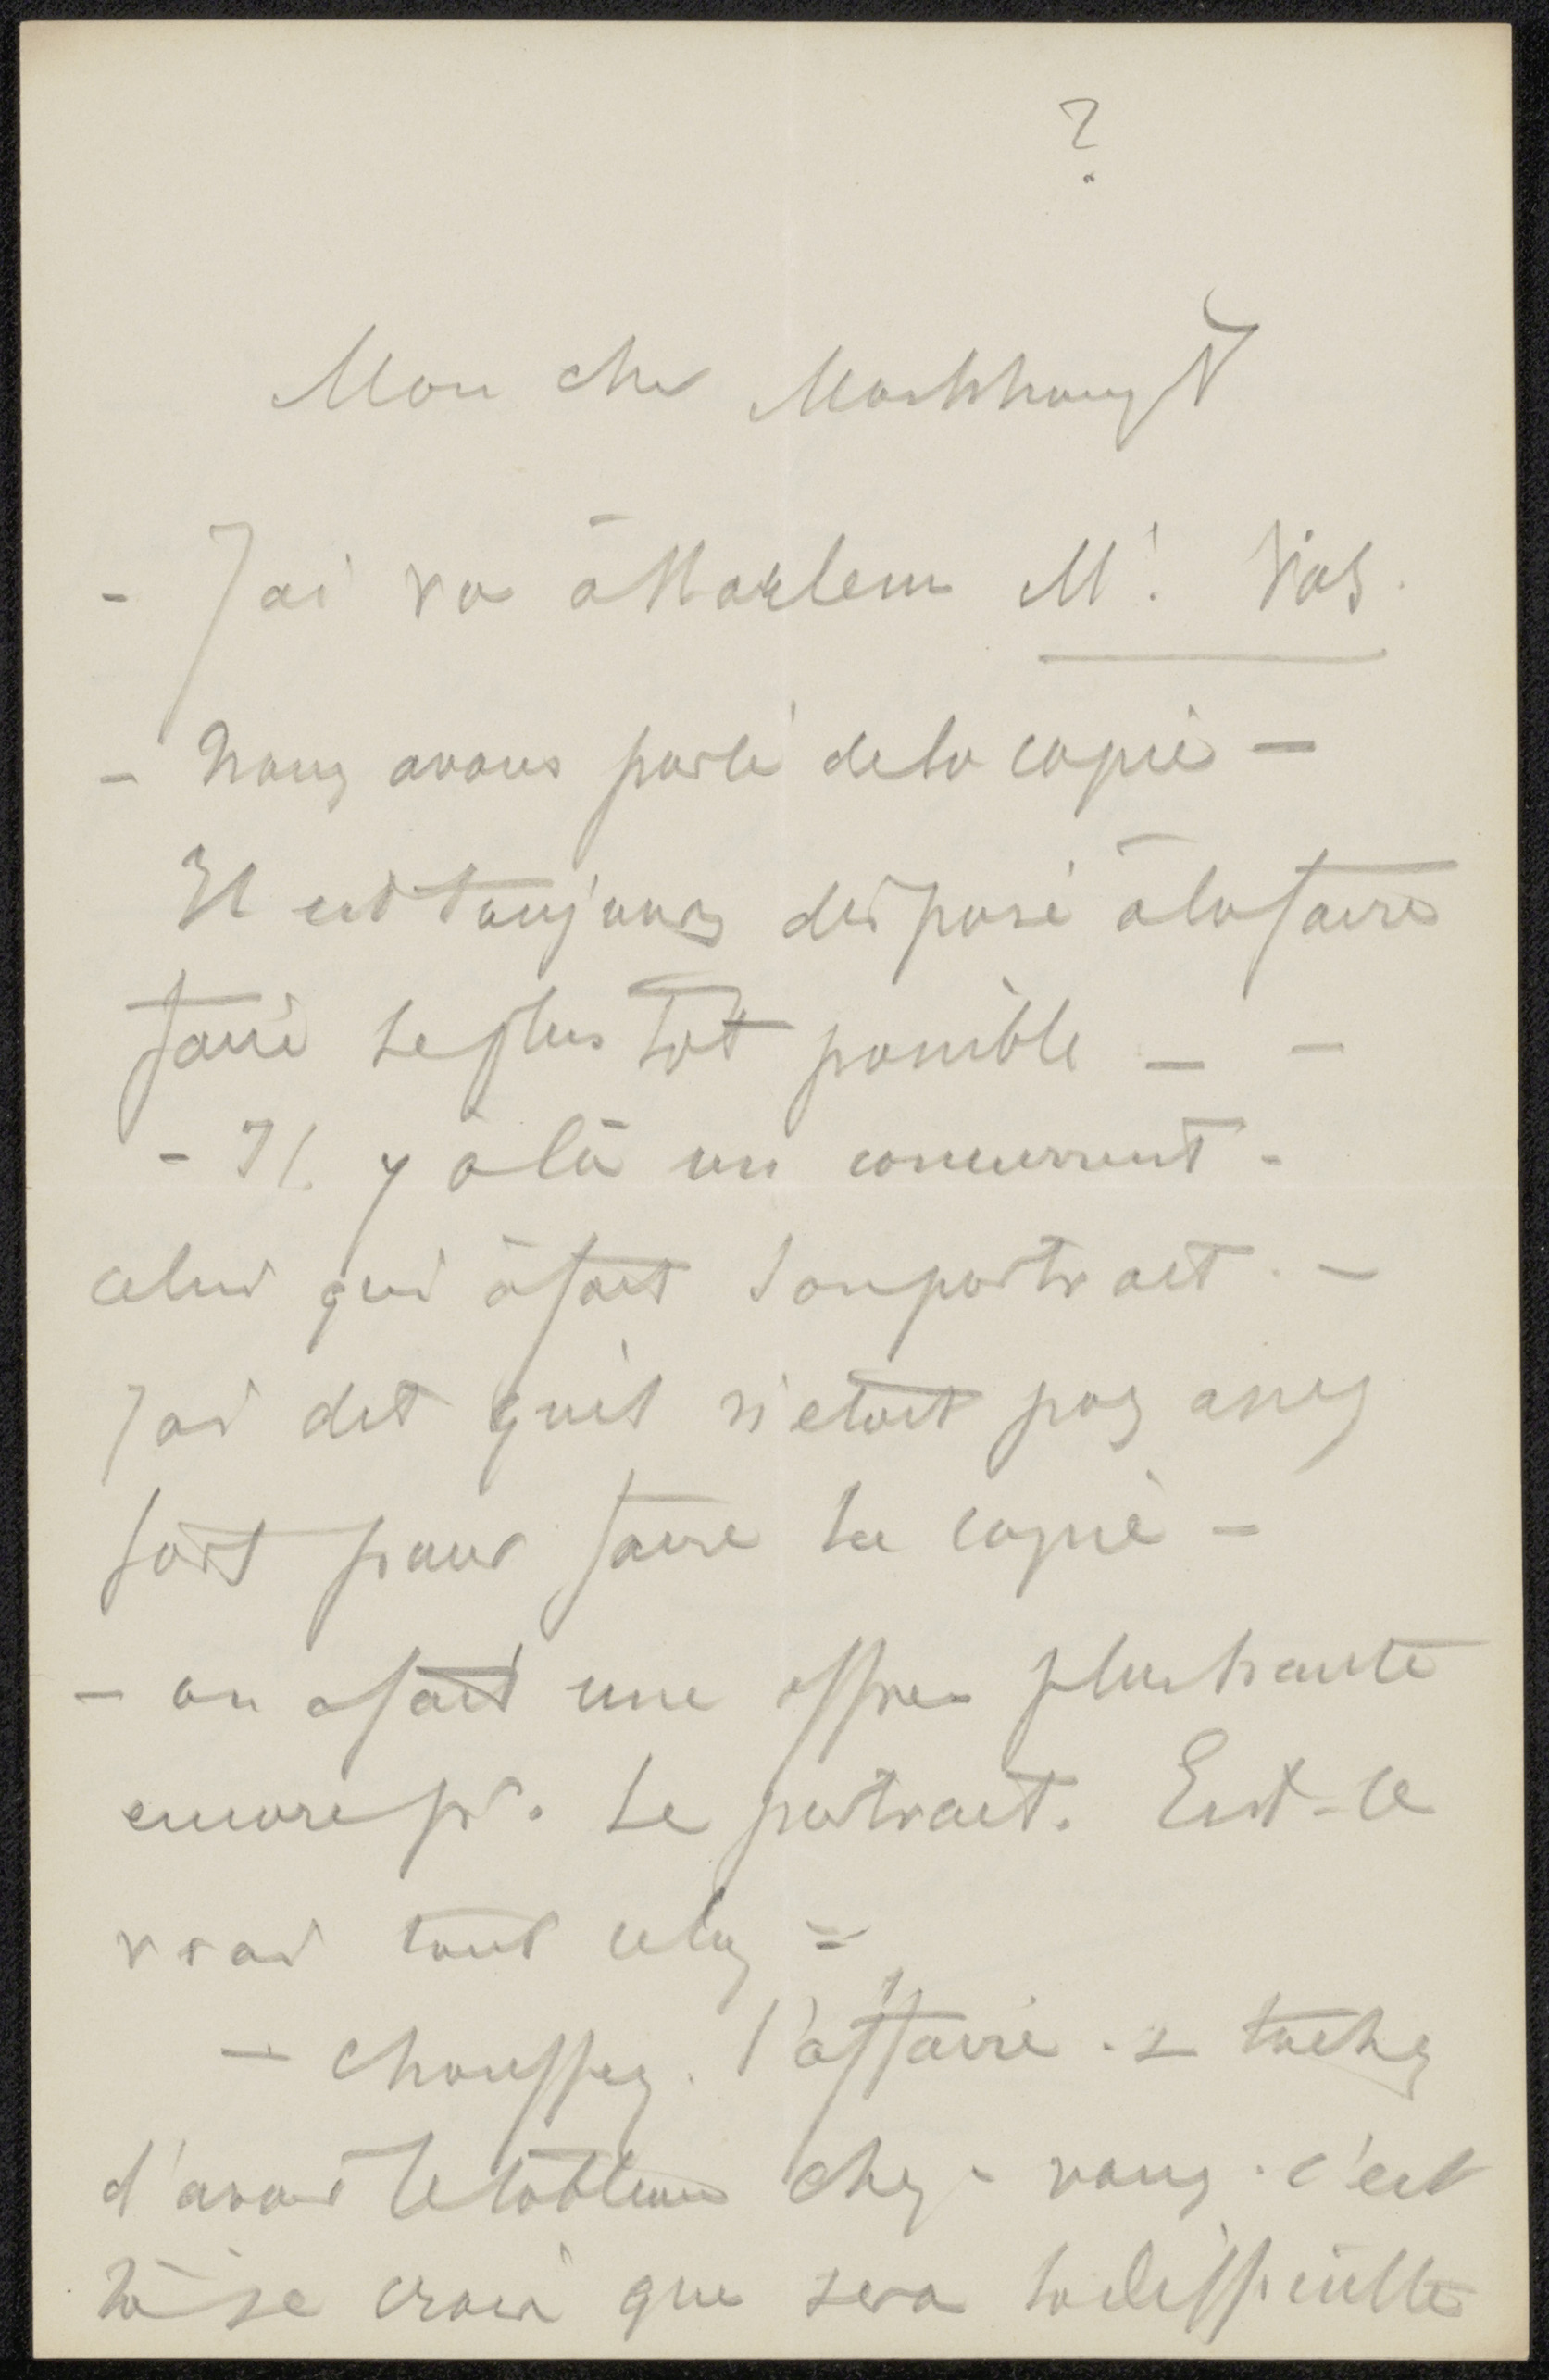 ?
Mon cher
- J'ai vu à Harlem Mr. Vas.
- nous avons parlé de la copie -
Il est toujours disposé à la faire
faire le plus tôt possible - -
- Il y à là un concurrent -
celui qui à fait son portrait. -
J'ai dit qu'il n'etait pas assez
fort pour faire la copie -
- on a fait une offre plus haute
encore pr. le portrait. Est-ce
vrai tout cela =
- chauffez l'affaire. & tachez
d'avoir le tableau chez-vous. c'est
là je crois que sera la difficulté